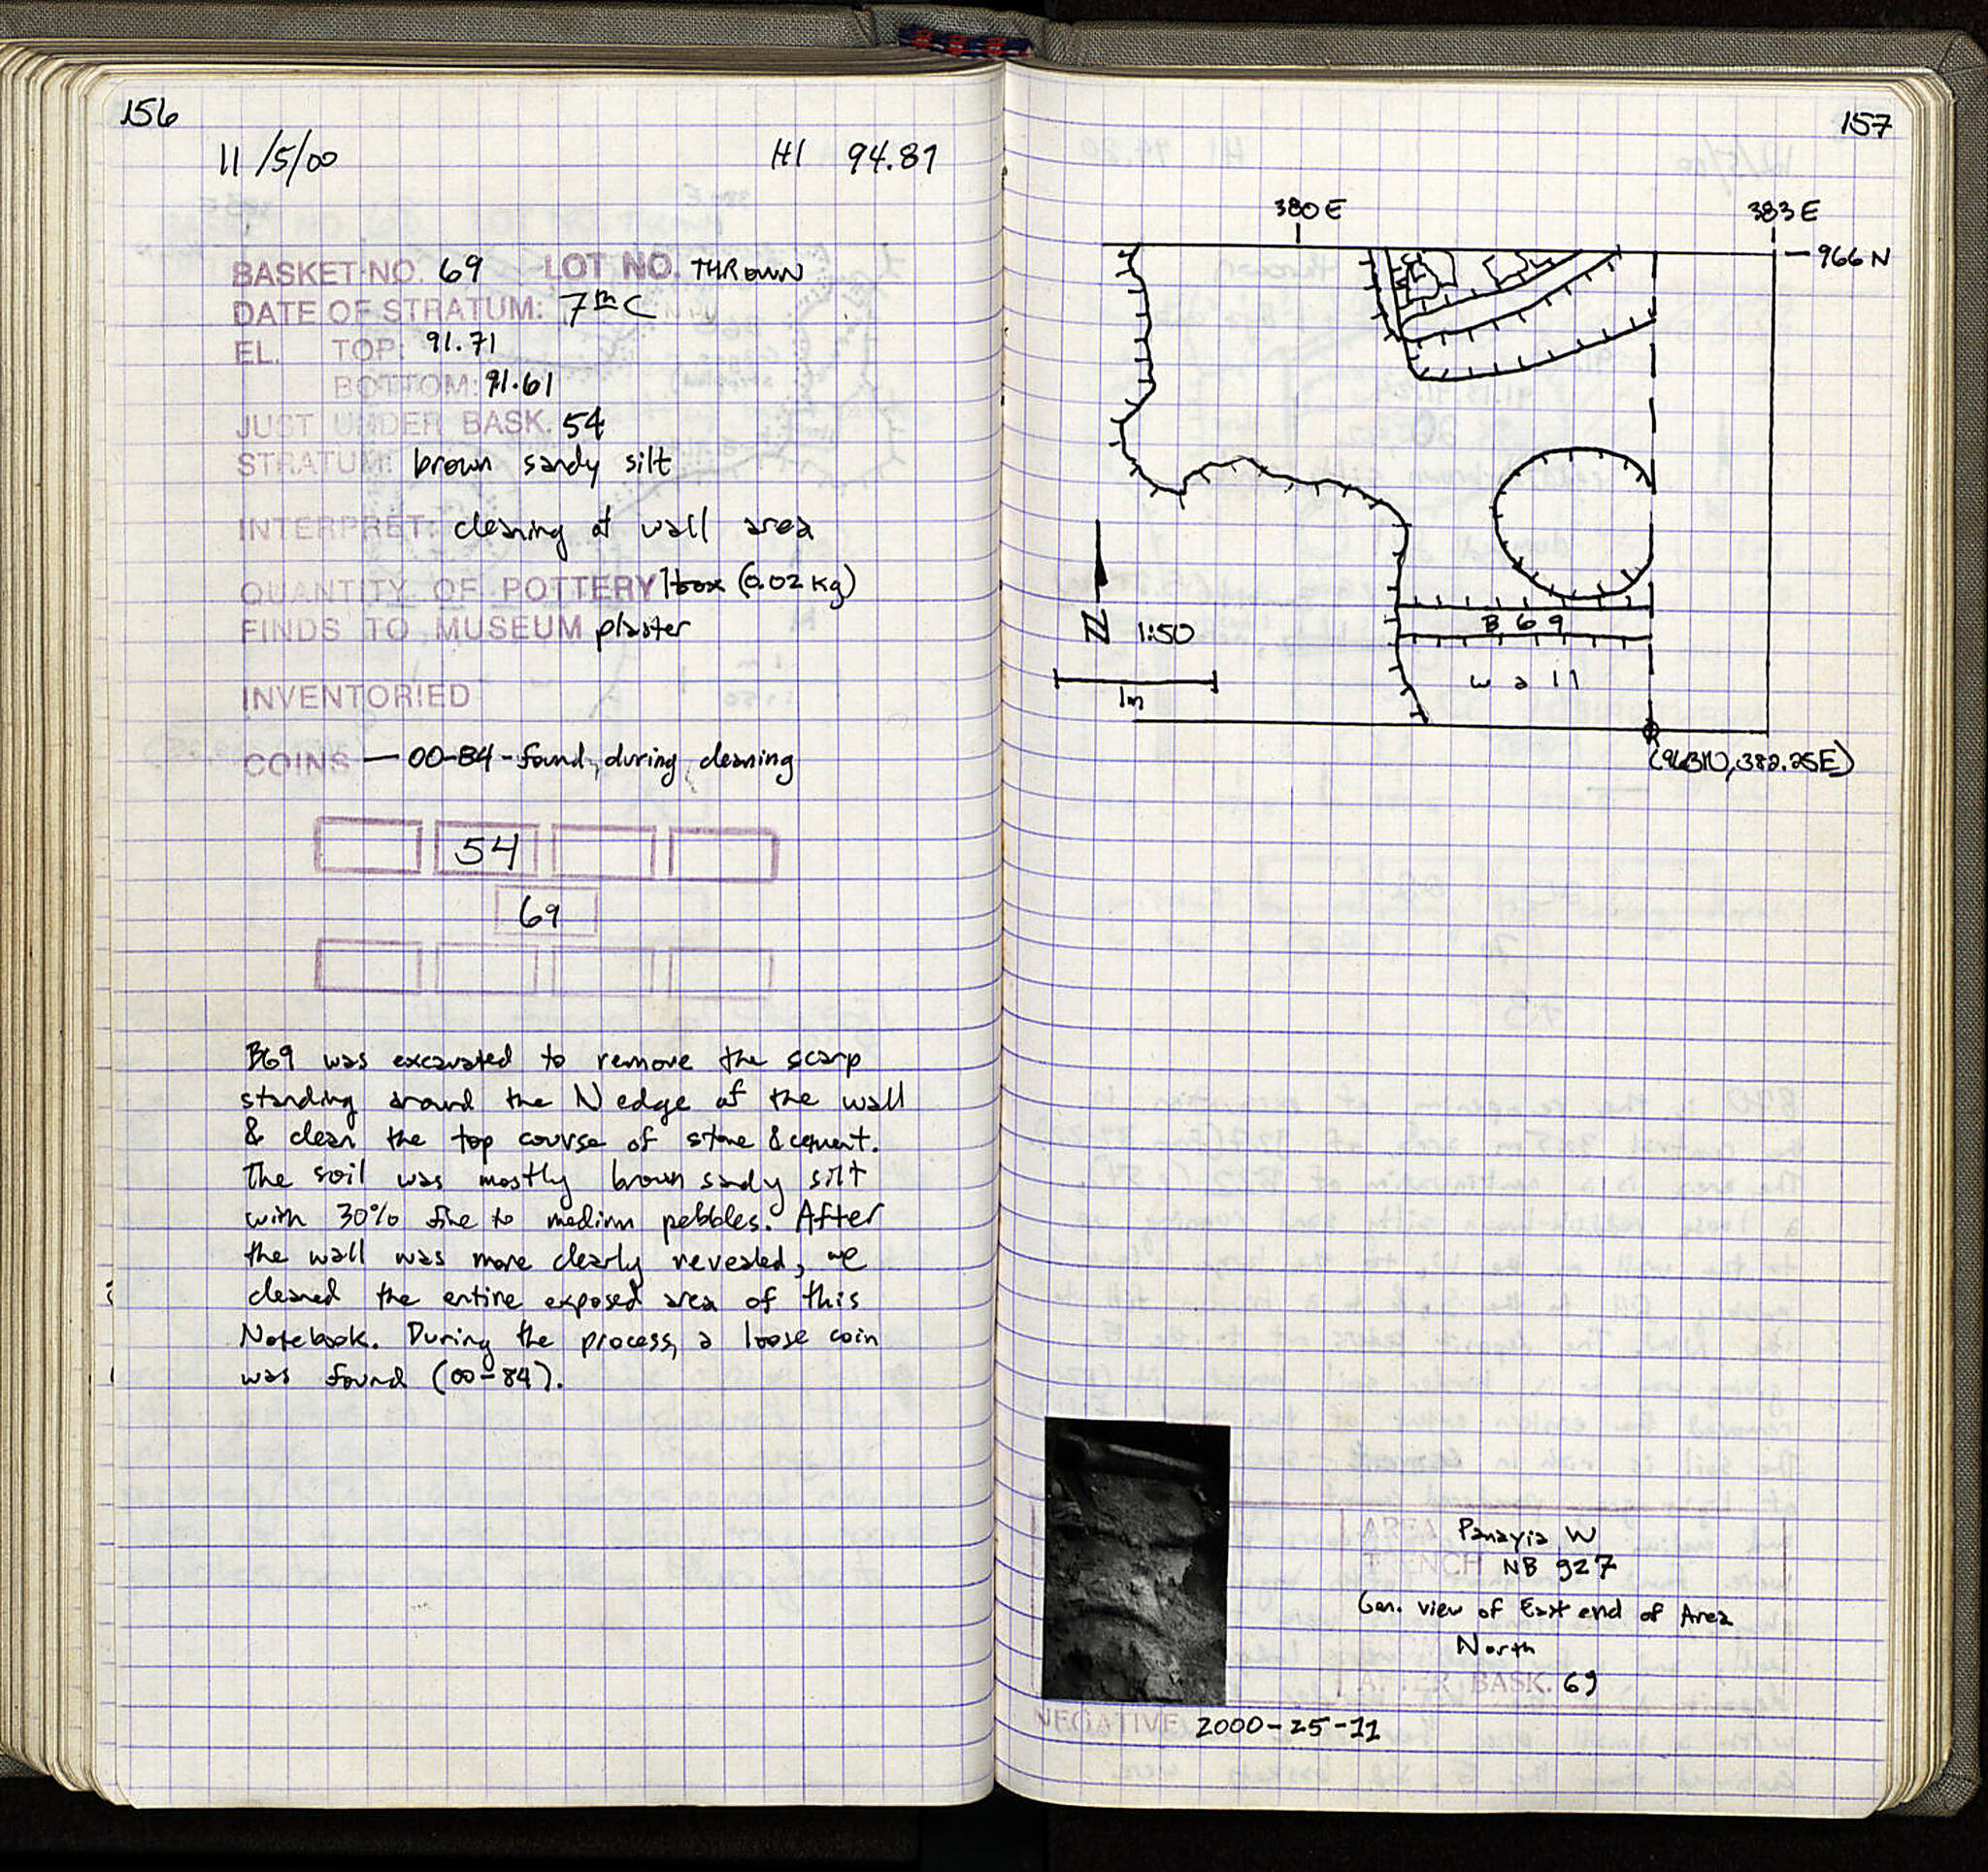 156
11/5/00 HI 94.87
BASKET NO. 69 LOT NO. THROWN
DATE OF STRATUM: 7th C
EL. TOP: 91.71
BOTTOM: 91.61
JUST UNDER BASK. 54
STRATUM: brown sandy silt
INTERPRET: cleaning of wall area
QUANTITY OF POTTERY 1 box (0.02 kg)
FINDS TO MUSEUM plaster
INVENTORIED
COINS — 00-84 - found during cleaning
54
69
B69 was excavated to remove the scarp
standing around the N edge of the wall
& clean the top course of stone & cement.
The soil was mostly brown sandy silt
with 30% fine to medium pebbles. After
the wall was more clearly revealed, we
cleaned the entire exposed area of this
Notebook. During the process, a loose coin
was found (00-84).
157
380 E 383 E
966 N
B 69
N 1:50
wall
1m
(963N, 382.25E)
AREA Panayia W
TRENCH NB 927
Gen. view of East end of Area
North
AFTER BASK. 69
NEGATIVE 2000-25-11